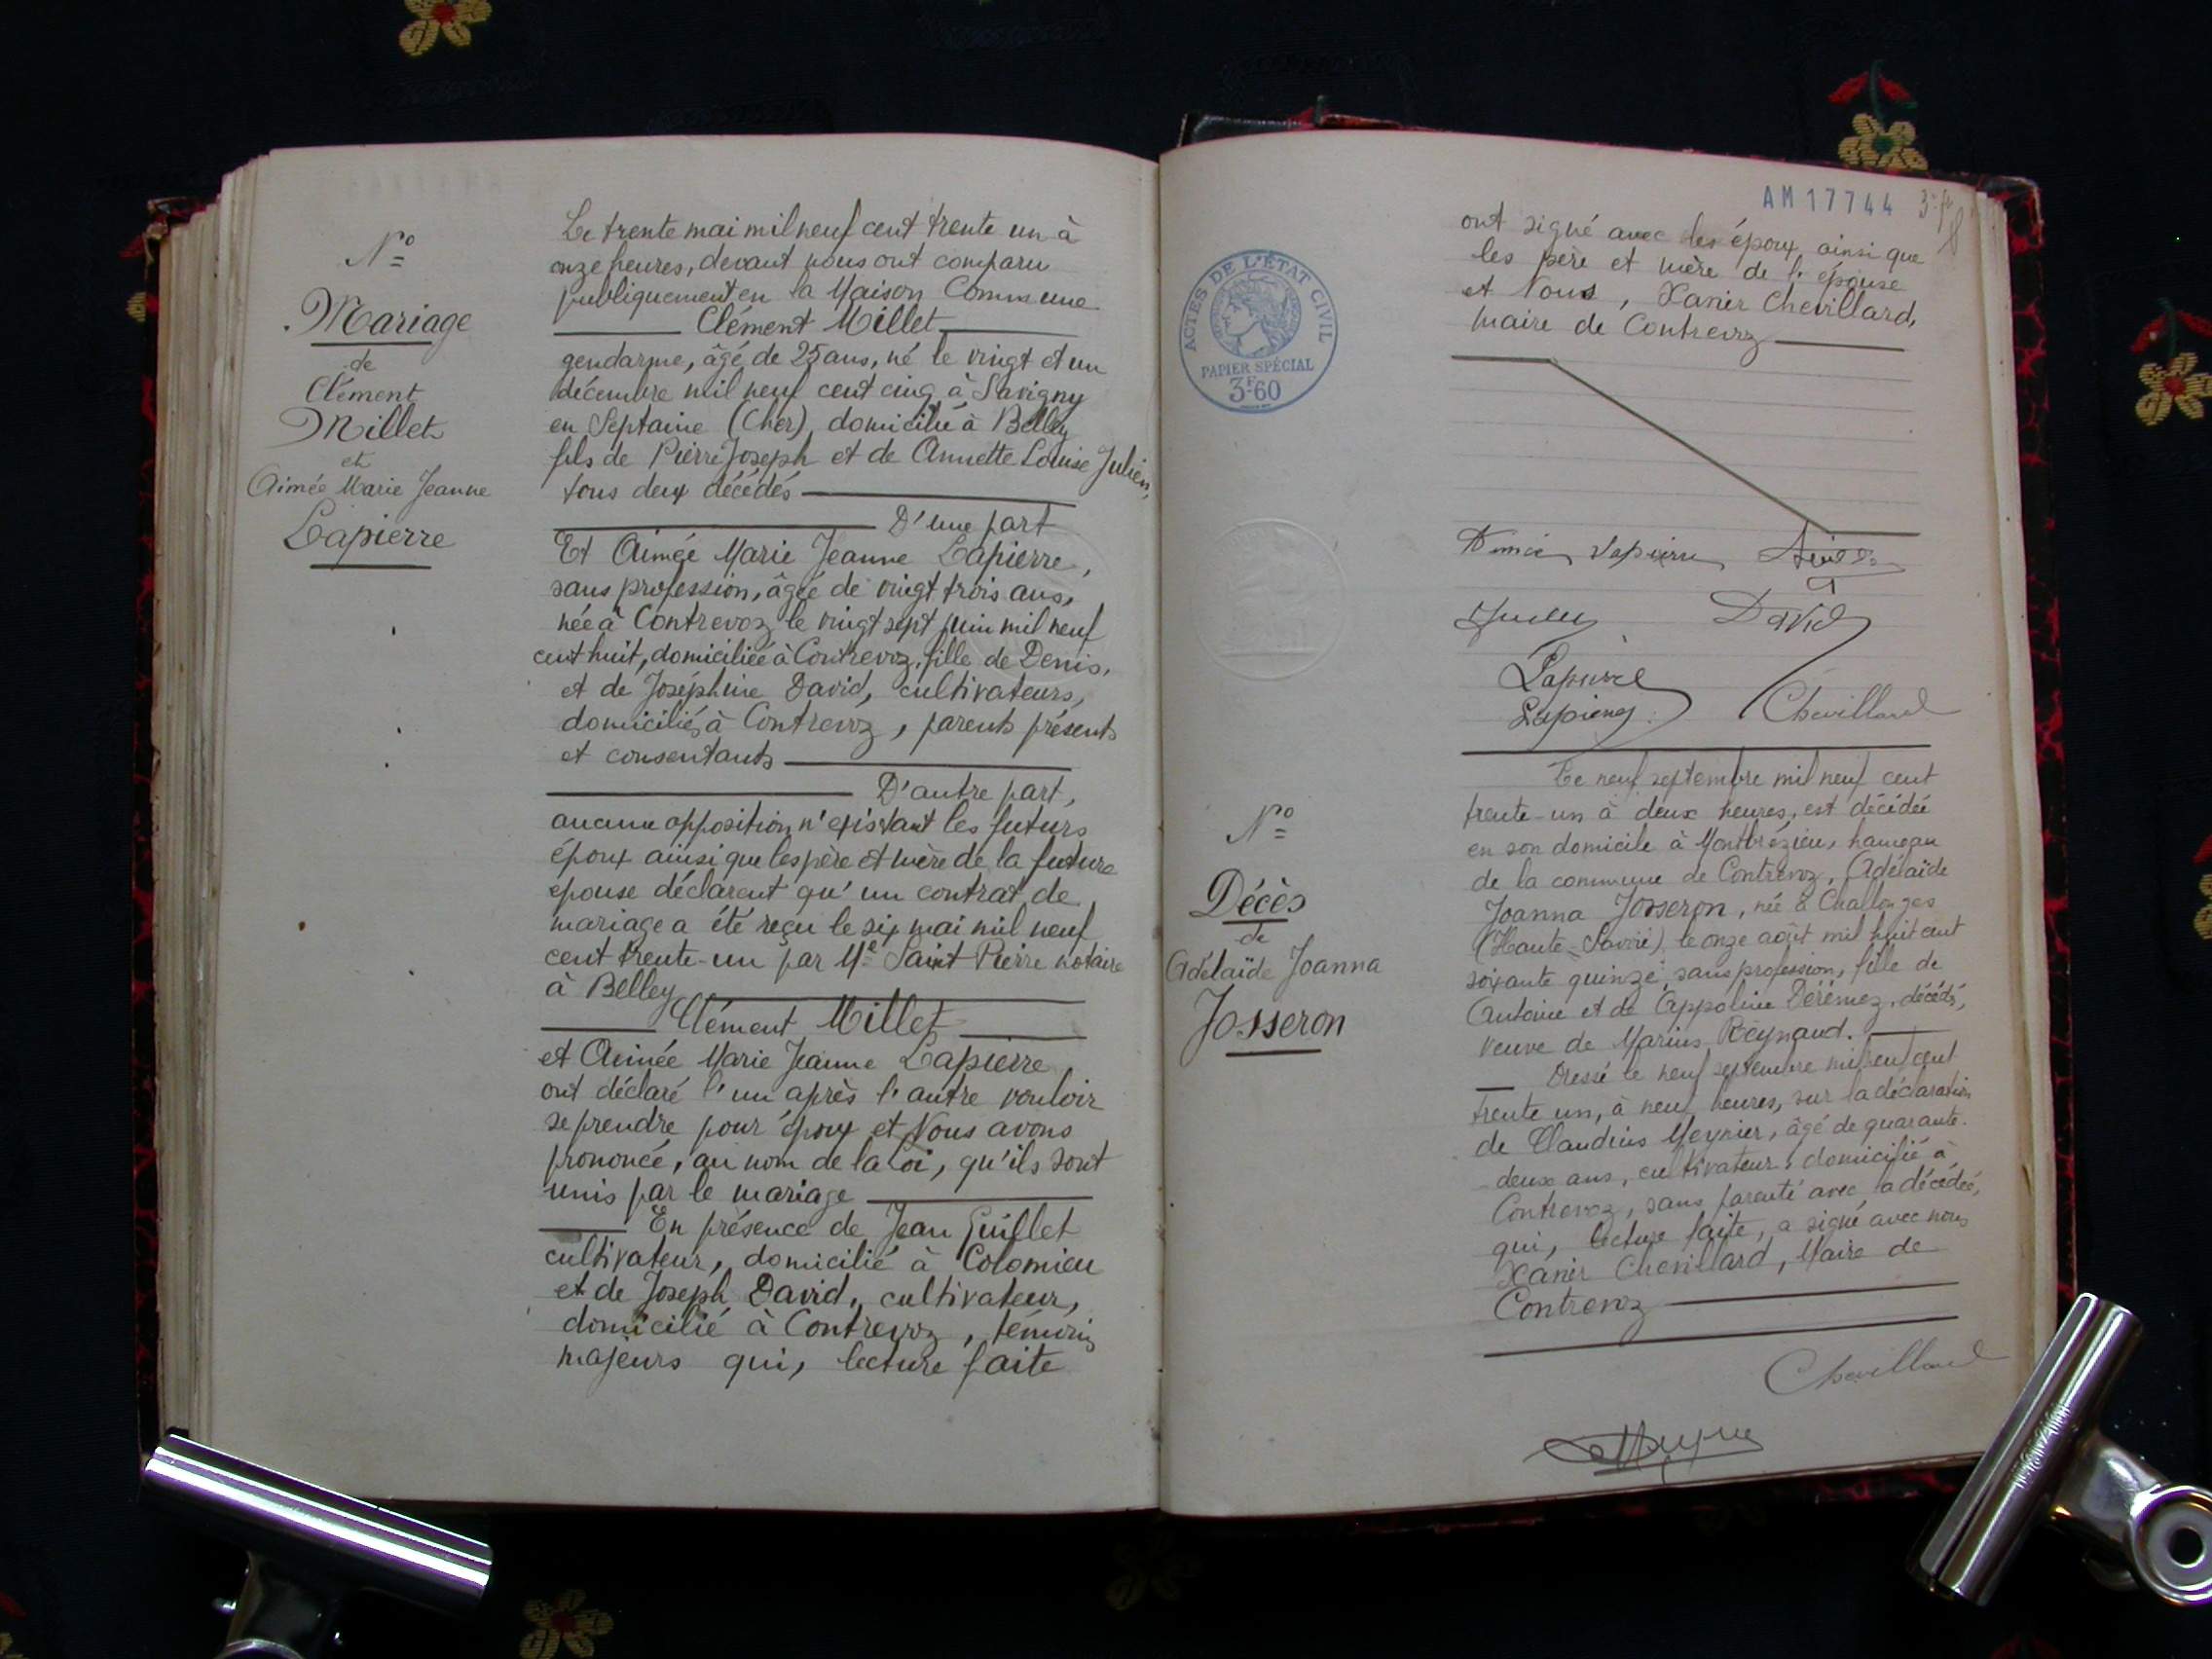 N°
Mariage
de
Clément
Millet
et
Aimée Marie Jeanne
Lapierre
Le trente mai mil neuf cent trente un à
onze heures, devant nous ont comparu
publiquement en la Maison Commune
Clément Millet
gendarme, âgé de 25 ans, né le vingt et un
décembre mil neuf cent cinq à Savigny
en Septaine (Cher), domicilié à Belley
fils de Pierre Joseph et de Annette Louise Julien,
tous deux décédés
D'une part
Et Aimée Marie Jeanne Lapierre,
sans profession, âgée de vingt trois ans,
née à Contrevoz le vingt sept juin mil neuf
cent huit, domiciliée à Contrevoz, fille de Denis,
et de Joséphine David, cultivateurs,
domiciliés à Contrevoz, parents présents
et consentants
D'autre part,
aucune opposition n'existant les futurs
époux ainsi que les père et mère de la future
epouse déclarent qu'un contrat de
mariage a été reçu le six mai mil neuf
cent trente-un par Me Saint Pierre notaire
à Belley
Clément Millet
et Aimée Marie Jeanne Lapierre
ont déclaré l'un après l'autre vouloir
se prendre pour époux et Nous avons
prononcé, au nom de la Loi, qu'ils sont
unis par le mariage
En présence de Jean Guillet
cultivateur, domicilié à Colomieu
et de Joseph David, cultivateur,
domicilié à Contrevoz, témoins
majeurs qui, lecture faite
AM 17744
ACTES DE L'ÉTAT CIVIL
PAPIER SPÉCIAL
3F60
ont signé avec les époux ainsi que
les père et mère de l'épouse
et Nous, Xavier Chevillard,
maire de Contrevoz
Lapierre
David
Lapierre
Lapierre
Chevillard
N°
Décès
de
Adélaïde Joanna
Josseron
Le neuf septembre mil neuf cent
trente-un à deux heures, est décédée
en son domicile à Montbrézieu, hameau
de la commune de Contrevoz, Adélaïde
Joanna Josseron, née à Challonges
(Haute-Savoie), le onze août mil huit cent
soixante quinze, sans profession, fille de
Antoine et de Appoline Dérémez, décédés,
veuve de Marius Reynaud.
Dressé le neuf septembre mil neuf cent
trente un, à neuf heures, sur la déclaration
de Claudius Meynier, âgé de quarante-
deux ans, cultivateur, domicilié à
Contrevoz, sans parenté avec la décédée,
qui, lecture faite, a signé avec nous
Xavier Chevillard, Maire de
Contrevoz
Chevillard